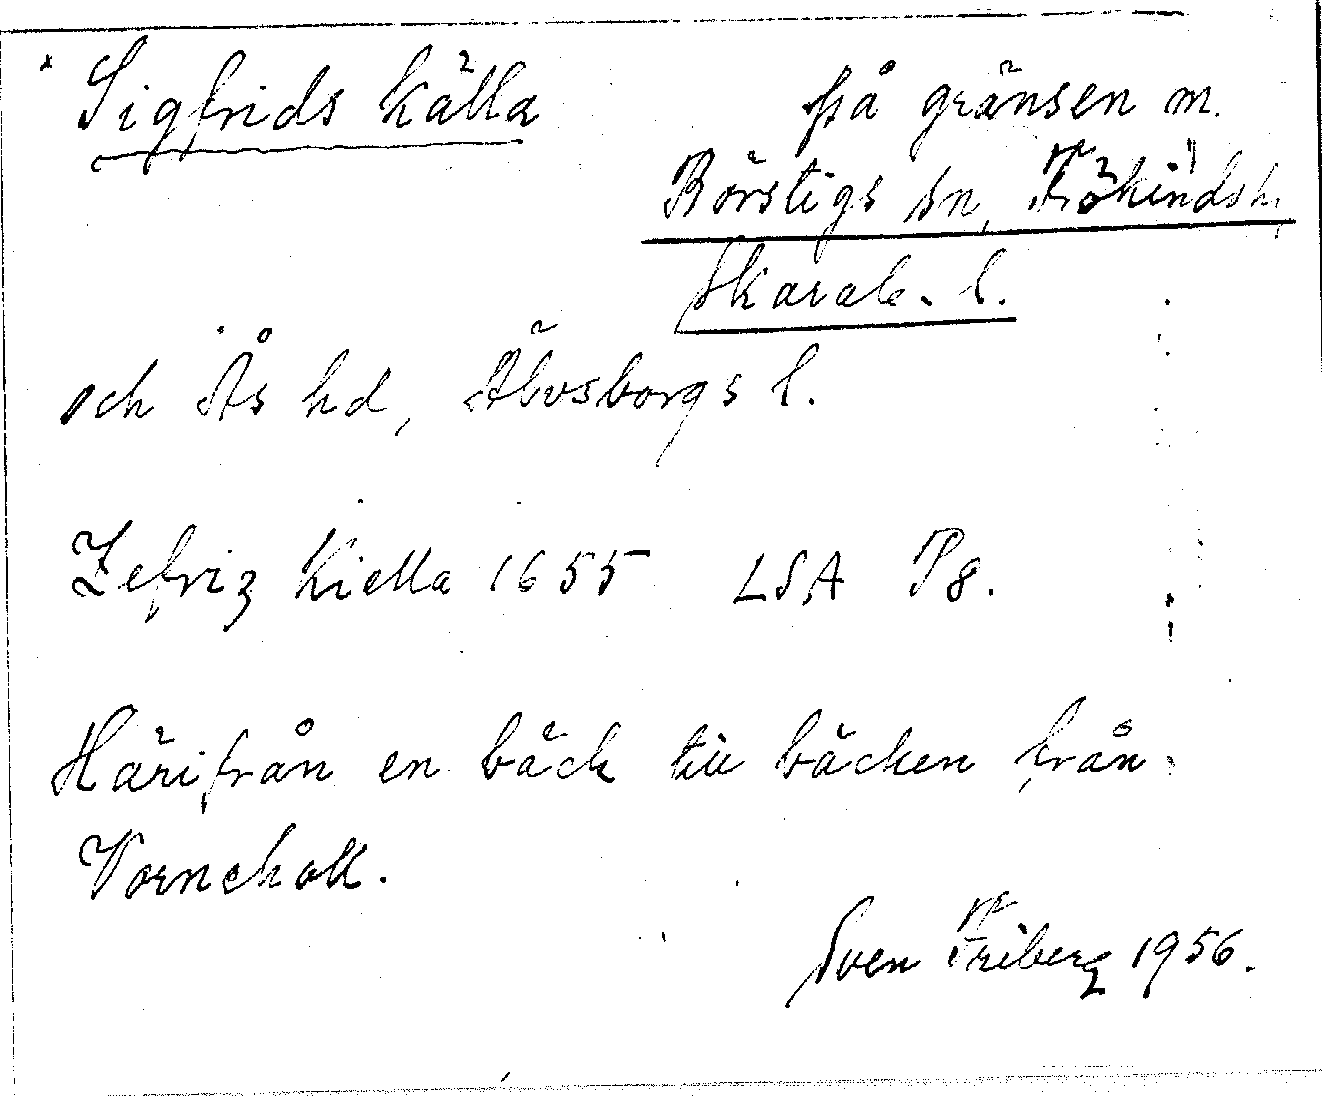 * Sigfrids källa på gränsen m.
Börstigs sn, Frökinds h.
Skarab. l.
och Ås hd, Älvsborgs l.
Zefriz Kiella 1655 LSA P8.
Härifrån en bäck till bäcken från
Vornehall.
Sven Friberg 1956.